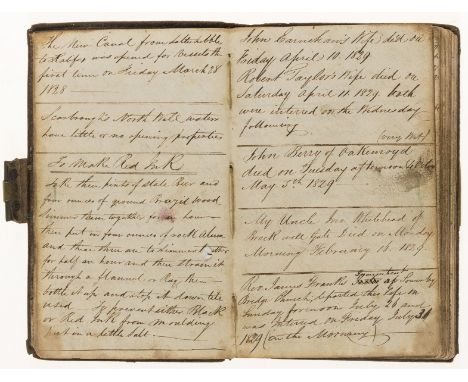 The New Canal from Salter Hebble
to Halifax was opened for Vessels the
first time on Friday March 28
1828
Scarbrough's North Well waters
have little or no opening properties
To Make Red Ink
Take three pints of stale Beer and
four ounces of ground Brazil wood
simmer them together for an hour
then put in four ounces of rock Alum
and these three are to simmer together
for half an hour and then strain it
through a flannel or Rag then
bottle it up and stop it down till
used. To prevent either Black
or Red Ink from moulding
put in a little Salt.
John Carnichan's Wife died on
Friday April 10. 1829
Robert Taylor's Wife died on
Saturday April 11. 1829 both
were interred on the Wednesday
following
John Berry of Oakenroyd
died on Tuesday afternoon
May 5th 1829
My Uncle Whitehead of
Brock Gate Died on Monday
Morning February 16. 1829.
Revd James Franks Incumbent of Sowerby
Bridge Church, departed this life on
Sunday forenoon July 26 and
was Interred on Friday July 31
1829 (in the Morning)